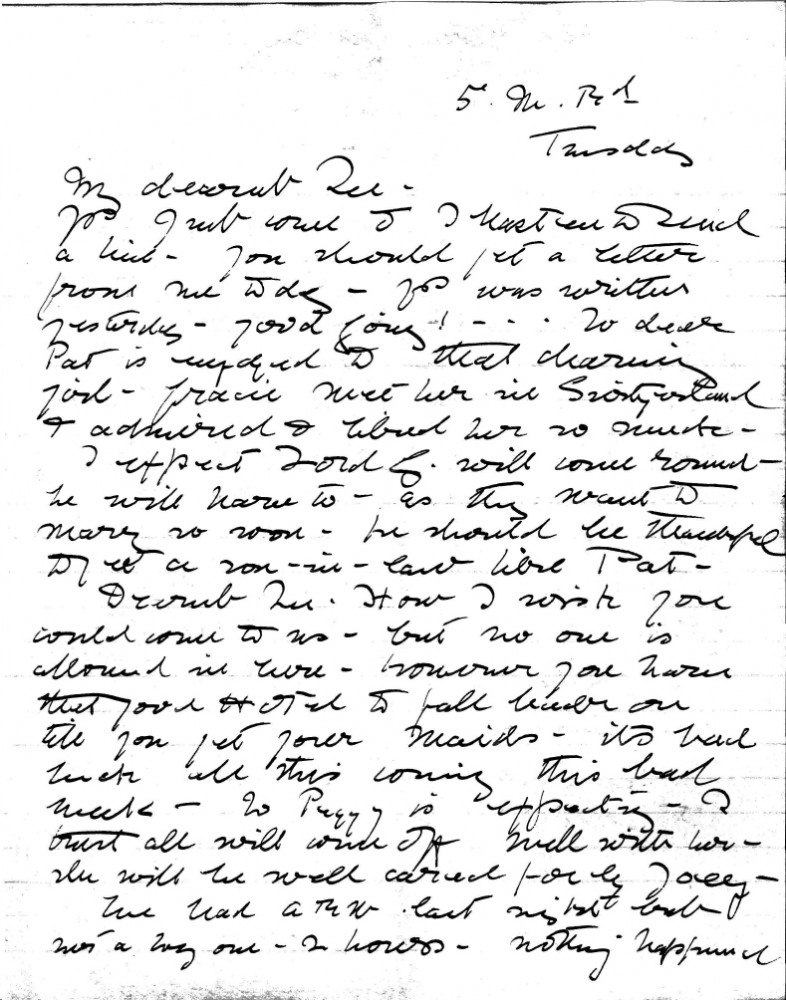 5. M. Rd
Tuesday
My dearest Zee -
Yrs just come & I hasten to send
a line - you should get a letter
from me today - yrs was written
yesterday - good going! - - - So dear
Pat is engaged to that charming
girl - Gracie met her in Switzerland
& admired & liked her so much -
I expect Lord G. will come round -
he will have to - as they want to
marry so soon - he should be thankful
to get a son-in-law like Pat -
Dearest Zee. How I wish you
could come to us - but no one is
allowed in here - however you have
that good Hotel to fall back on
till you get your Maids - it's bad
luck all this coming this bad
week - So Peggy is expecting - I
trust all will come off well with her -
she will be well cared for by
We had a last night but
not a long one - 2 hours - nothing happened